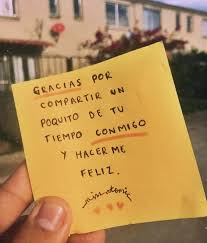 GRACIAS POR
COMPARTIR UN
POQUITO DE TU
TIEMPO CONMIGO
Y HACERME
FELIZ.